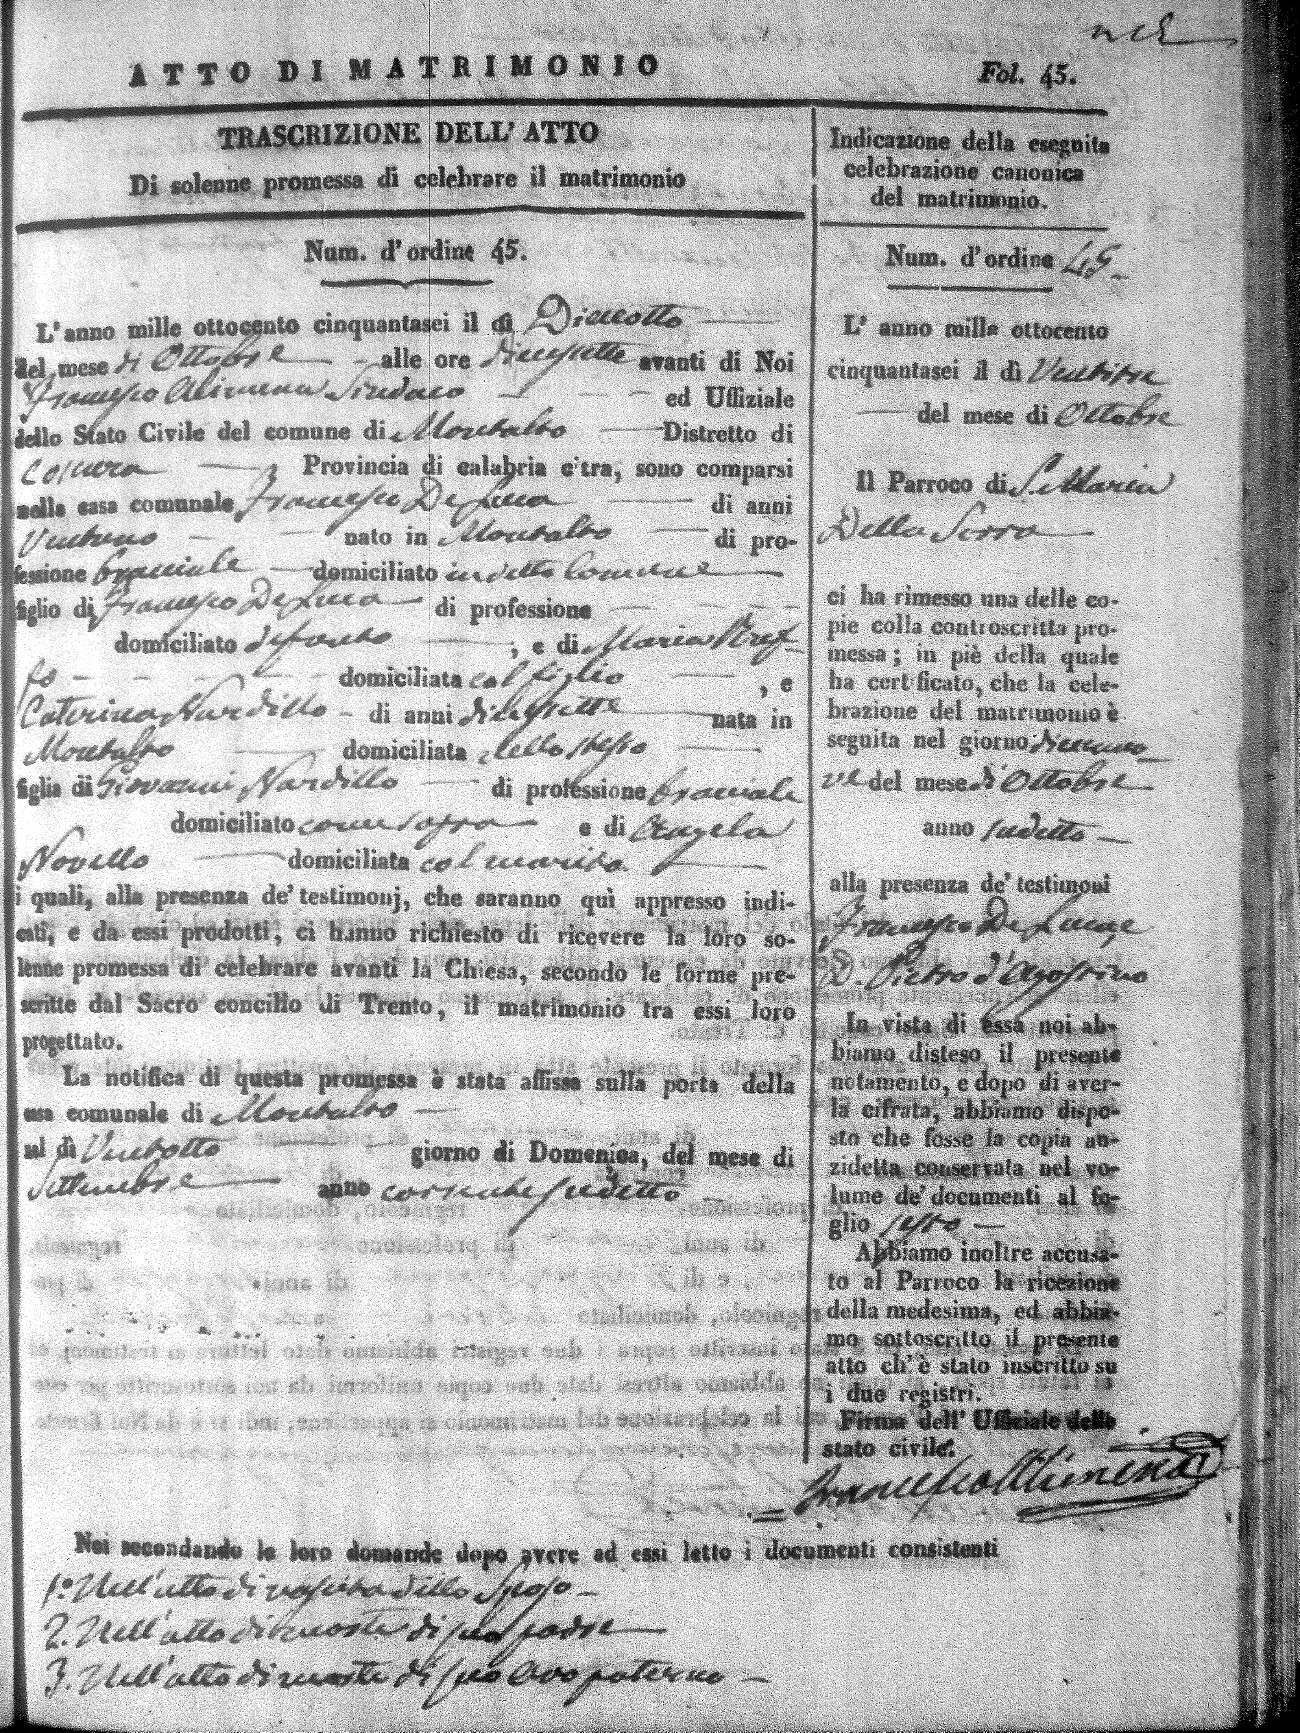 ATTO DI MATRIMONIO
Fol. 45.
TRASCRIZIONE DELL' ATTO
Di solenne promessa di celebrare il matrimonio
Num. d' ordine 45.
L' anno mille ottocento cinquantasei il dì Dieciotto
del mese di Ottobre alle ore diecisette avanti di Noi
Francesco Alimena Sindaco ed Uffiziale
dello Stato Civile del comune di Montalto Distretto di
Cosenza Provincia di calabria citra, sono comparsi
nella casa comunale Francesco De Luca di anni
Ventuno nato in Montalto di pro-
fessione bracciale domiciliato in detto Comune
figlio di Francesco De Luca di professione
domiciliato defonto , e di Maria
domiciliata col figlio , e
Caterina Nardillo di anni diciesette nata in
Montalto domiciliata nello stesso
figlia di Giovanni Nardillo di professione bracciale
domiciliato come sopra e di Angela
Novello domiciliata col marito.
i quali, alla presenza de' testimonj, che saranno quì appresso indi-
cati, e da essi prodotti, ci hanno richiesto di ricevere la loro so-
lenne promessa di celebrare avanti la Chiesa, secondo le forme pre-
scritte dal Sacro concilio di Trento, il matrimonio tra essi loro
progettato.
La notifica di questa promessa è stata affissa sulla porta della
casa comunale di Montalto
nel dì Ventotto giorno di Domenica, del mese di
Settembre anno corrente sudetto
Indicazione della eseguita
celebrazione canonica
del matrimonio.
Num. d' ordine 45
L' anno mille ottocento
cinquantasei il dì Ventitre
del mese di Ottobre
Il Parroco di S. Maria
Della Serra
ci ha rimesso una delle co-
pie colla controscritta pro-
messa; in piè della quale
ha certificato, che la cele-
brazione del matrimonio è
seguita nel giorno diecinno
ve del mese di Ottobre
anno sudetto
alla presenza de' testimoni
Francesco De Lume,
D. Pietro d'Agostino
In vista di essa noi ab-
biamo disteso il presente
notamento, e dopo di aver-
la cifrata, abbiamo dispo-
sto che fosse la copia an-
zidetta conservata nel vo-
lume de' documenti al fo-
glio sesto
Abbiamo inoltre accusa-
to al Parroco la ricezione
della medesima, ed abbia-
mo sottoscritto il presente
atto ch' è stato inscritto su
i due registri.
Firma dell' Uffiziale dello
stato civile.
Francesco Alimena
Noi secondando le loro domande dopo avere ad essi letto i documenti consistenti
1.° Nell'atto di nascita dello Sposo
2. Nell'atto di morte di suo padre
3. Nell'atto di morte di suo Avo paterno